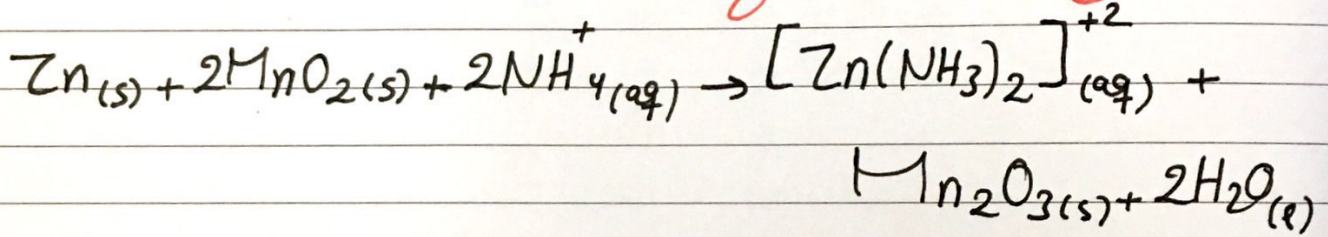 Zn(s) + 2MnO₂(s) + 2NH₄⁺(aq) → [Zn(NH₃)₂]⁺²(aq) +
Mn₂O₃(s) + 2H₂O(l)